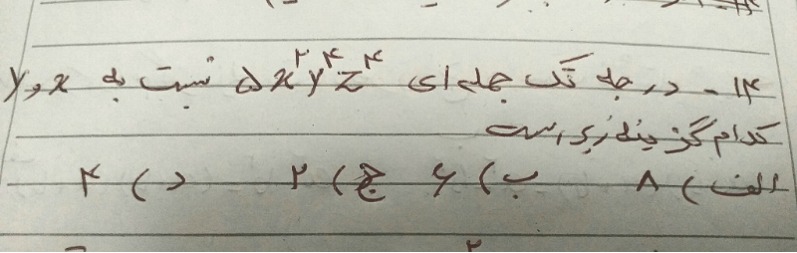 ۱۴ - درجه تک جمله ای ۵x²y⁴z⁴ نسبت به x و y
کدام گزینه زیر است
الف) ۸ ب) ۶ ج) ۲ د) ۴